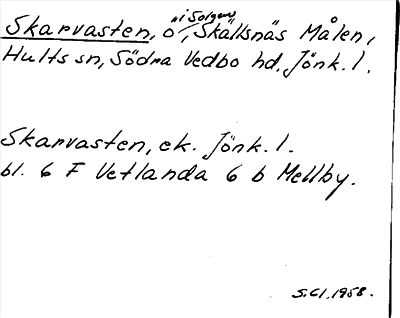 Skarvasten, ö i Solgen, Skällsnäs Målen,
Hults sn, Södra Vedbo hd, Jönk. l.
Skarvasten, ek. Jönk. l.
bl. 6 F Vetlanda 6 b Mellby.
S.Cl. 1958.